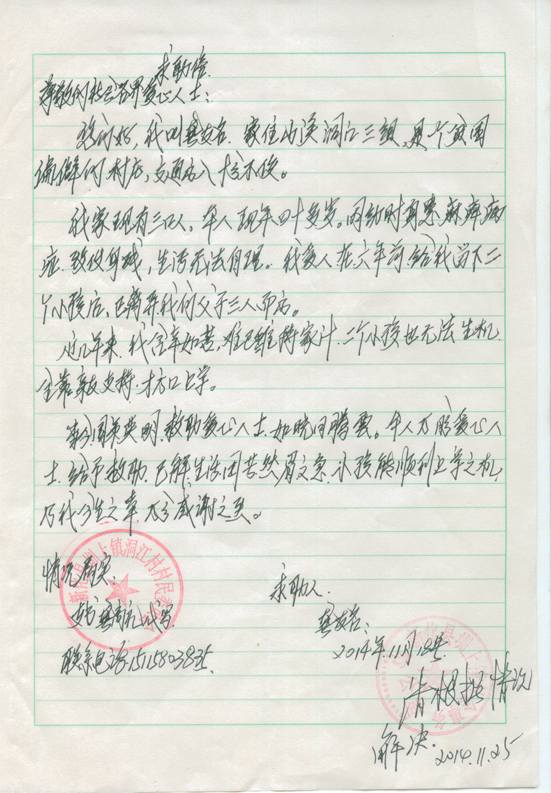 求助信
尊敬的社会各界爱心人士:
您们好,我叫龚 家住 溪洞口三组,是个贫困
偏僻的村庄,交通 十分不便。
我家现有三口人,本人现年四十多岁。因幼时身患麻痹病
症,致使身残,生活无法自理。我爱人在六年前给我留下二
个小孩后,已离弃我们父子三人而去。
近几年来,我含辛如苦,难已维持家计,二个小孩也无法生机,
全靠亲友支持, 口上学。
英明,救助爱心人士,如 腾云。本人万盼爱心人
士,给予救助,已解生活困苦然眉之急,小孩能顺利上学之机,
乃我今生之幸,万分感谢之至。
情况属实 求助人:
代写 龚
联系电话:15115803 2014年11月18
洞江村村民委员会
请根据情况
解决.2014.11.25